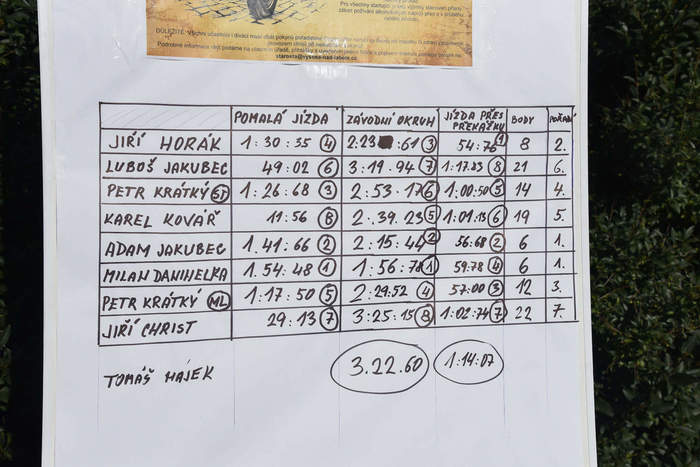 DŮLEŽITÉ: Všichni účastníci i diváci musí dbát pokynů pořadatelů
Podrobné informace obdržíte na obecním úřadě, přihlášky
starosta@vysoka-nad-labem.cz
POMALÁ JÍZDA ZÁVODNÍ OKRUH JÍZDA PŘES PŘEKÁŽKU BODY POŘADÍ
JIŘÍ HORÁK 1:30:35 4 2:23 :61 3 54:76 1 8 2.
LUBOŠ JAKUBEC 49:02 6 3:19.94 7 1:17.23 8 21 6.
PETR KRÁTKÝ ST 1:26:68 3 2:53.17 6 1:00:50 5 14 4.
KAREL KOVÁŘ 11:56 8 2:.39.23 5 1:01.13 6 19 5.
ADAM JAKUBEC 1.41:66 2 2:15:44 2 56:68 2 6 1.
MILAN DANIHELKA 1.54:48 1 1:56:78 1 59:78 4 6 1.
PETR KRÁTKÝ ML 1:17:50 5 2:29:52 4 57:00 3 12 3.
JIŘÍ CHRIST 29:13 7 3:25:15 8 1:02:74 7 22 7.
TOMÁŠ HÁJEK 3.22.60 1:14:07